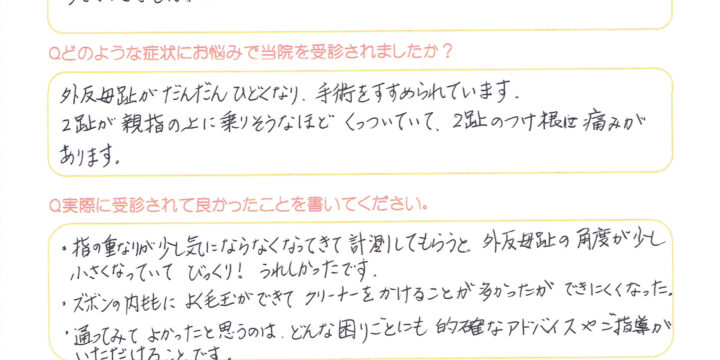 Qどのような症状にお悩みで当院を受診されましたか？
外反母趾がだんだんひどくなり、手術をすすめられています.
2趾が親指の上に乗りそうなほど くっついていて、2趾のつけ根に痛みが
あります。
Q実際に受診されて良かったことを書いてください。
・指の重なりが少し気にならなくなってきて計測してもらうと 外反母趾の角度が少し
小さくなっていて びっくり! うれしかったです.
・ズボンの内ももに よく毛玉ができて クリーナーをかけることが多かったが できにくくなった.
・通ってみて よかったと思うのは、どんな困りごとにも 的確なアドバイスや ご指導が
いただけることです。